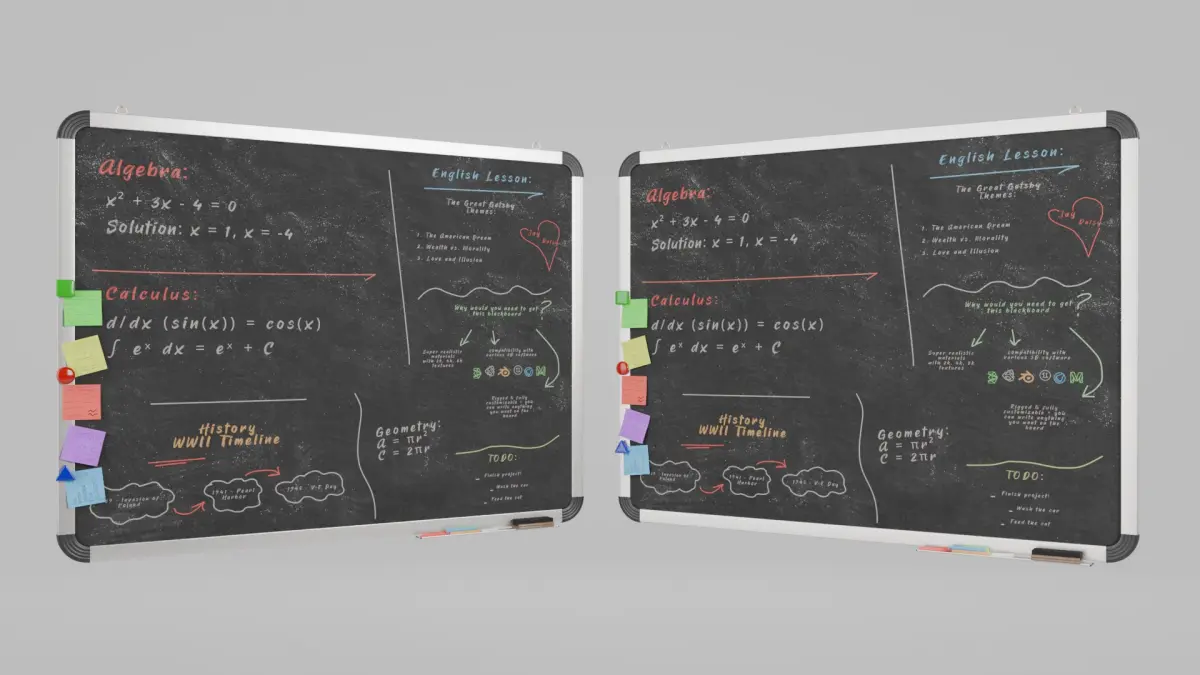 Algebra:
x² + 3x - 4 = 0
Solution: x = 1, x = -4
Calculus:
d/dx (sin(x)) = cos(x)
∫ eˣ dx = eˣ + C
History
WWII Timeline
- Invasion of
Poland
1941 - Pearl
Harbor
1945 - V-E Day
Geometry:
A = πr²
C = 2πr
English Lesson:
The Great Gatsby
Themes:
1. The American Dream
2. Wealth vs. Morality
3. Love and Illusion
Jay
Why would you need to get
this blackboard
?
Super realistic
materials
with
textures
compatibility with
various 3D software
Rigged & fully
customizable - you
can write anything
you want on the
board
TODO:
- Finish project!
- Wash the car
- Feed the cat
Algebra:
x² + 3x - 4 = 0
Solution: x = 1, x = -4
Calculus:
d/dx (sin(x)) = cos(x)
∫ eˣ dx = eˣ + C
History
WWII Timeline
- Invasion of
Poland
1941 - Pearl
Harbor
1945 - V-E Day
Geometry:
A = πr²
C = 2πr
English Lesson:
The Great Gatsby
Themes:
1. The American Dream
2. Wealth vs. Morality
3. Love and Illusion
Jay
Why would you need to get
this blackboard
?
Super realistic
materials
with
textures
compatibility with
various 3D software
Rigged & fully
customizable - you
can write anything
you want on the
board
TODO:
- Finish project!
- Wash the car
- Feed the cat